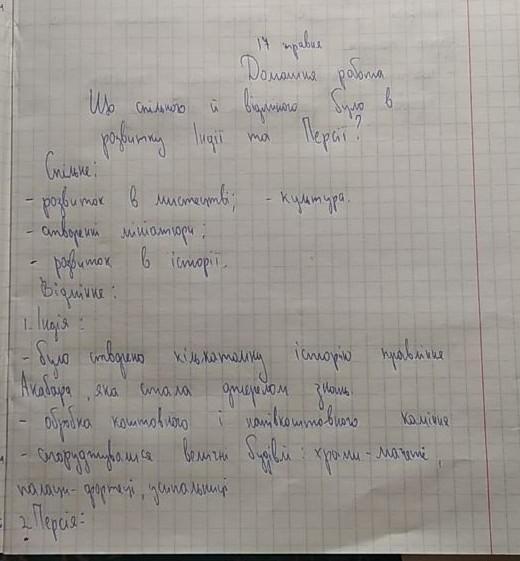 17 травня
Домашня робота
Що спільного й відмінного було в
розвитку Індії та Персії?
Спільне:
- розвиток в мистецтві; - культура.
- створенні мініатюри;
- розвиток в історії.
Відмінне:
1. Індія:
- було створено кількатомну історію правління
Акабара, яка стала джерелом знань.
- обробка коштовного і напівкоштовного каміння
- споруджувалися величні будівлі: храми-мечеті,
палаци-фортеці, усипальниці
2. Персія: